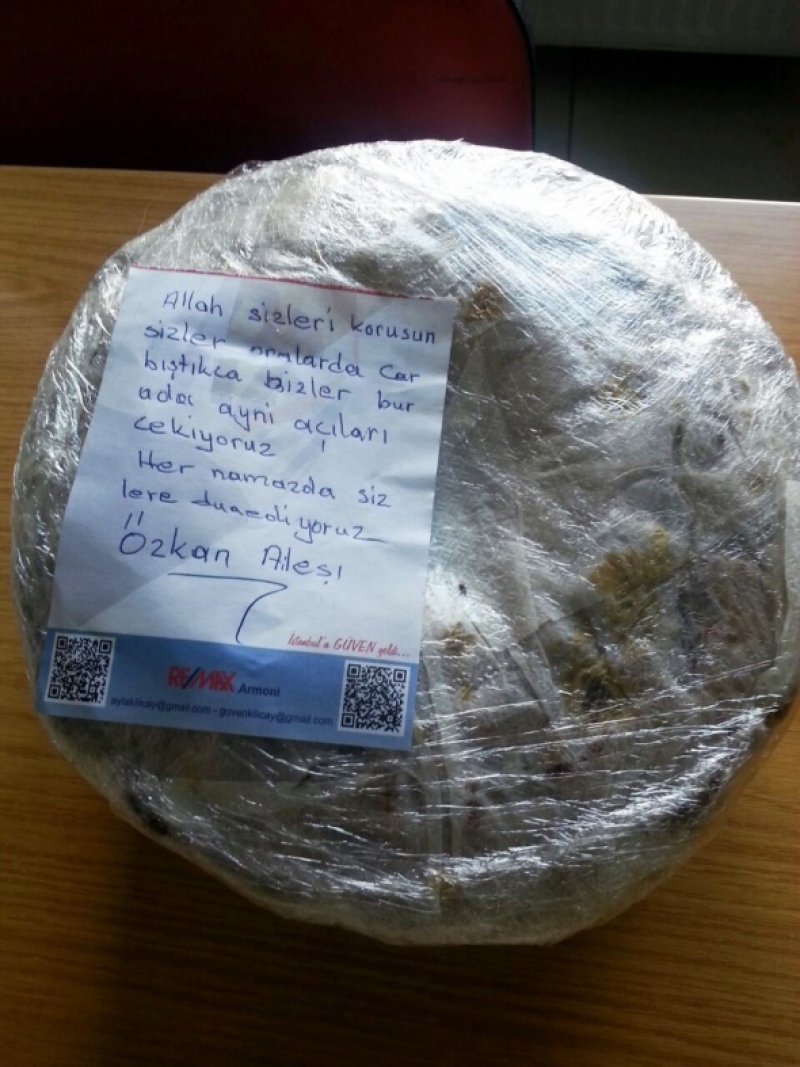 Allah sizleri korusun
sizler oralarda Car
bıştıkca bizler bur
ada ayni açıları
cekiyoruz !
Her namazda siz
lere duaediyoruz
Özkan Aileşi
İstanbul'a GÜVEN geldi...
RE/MAX Armoni
aylakilicay@gmail.com - guvenkilicay@gmail.com